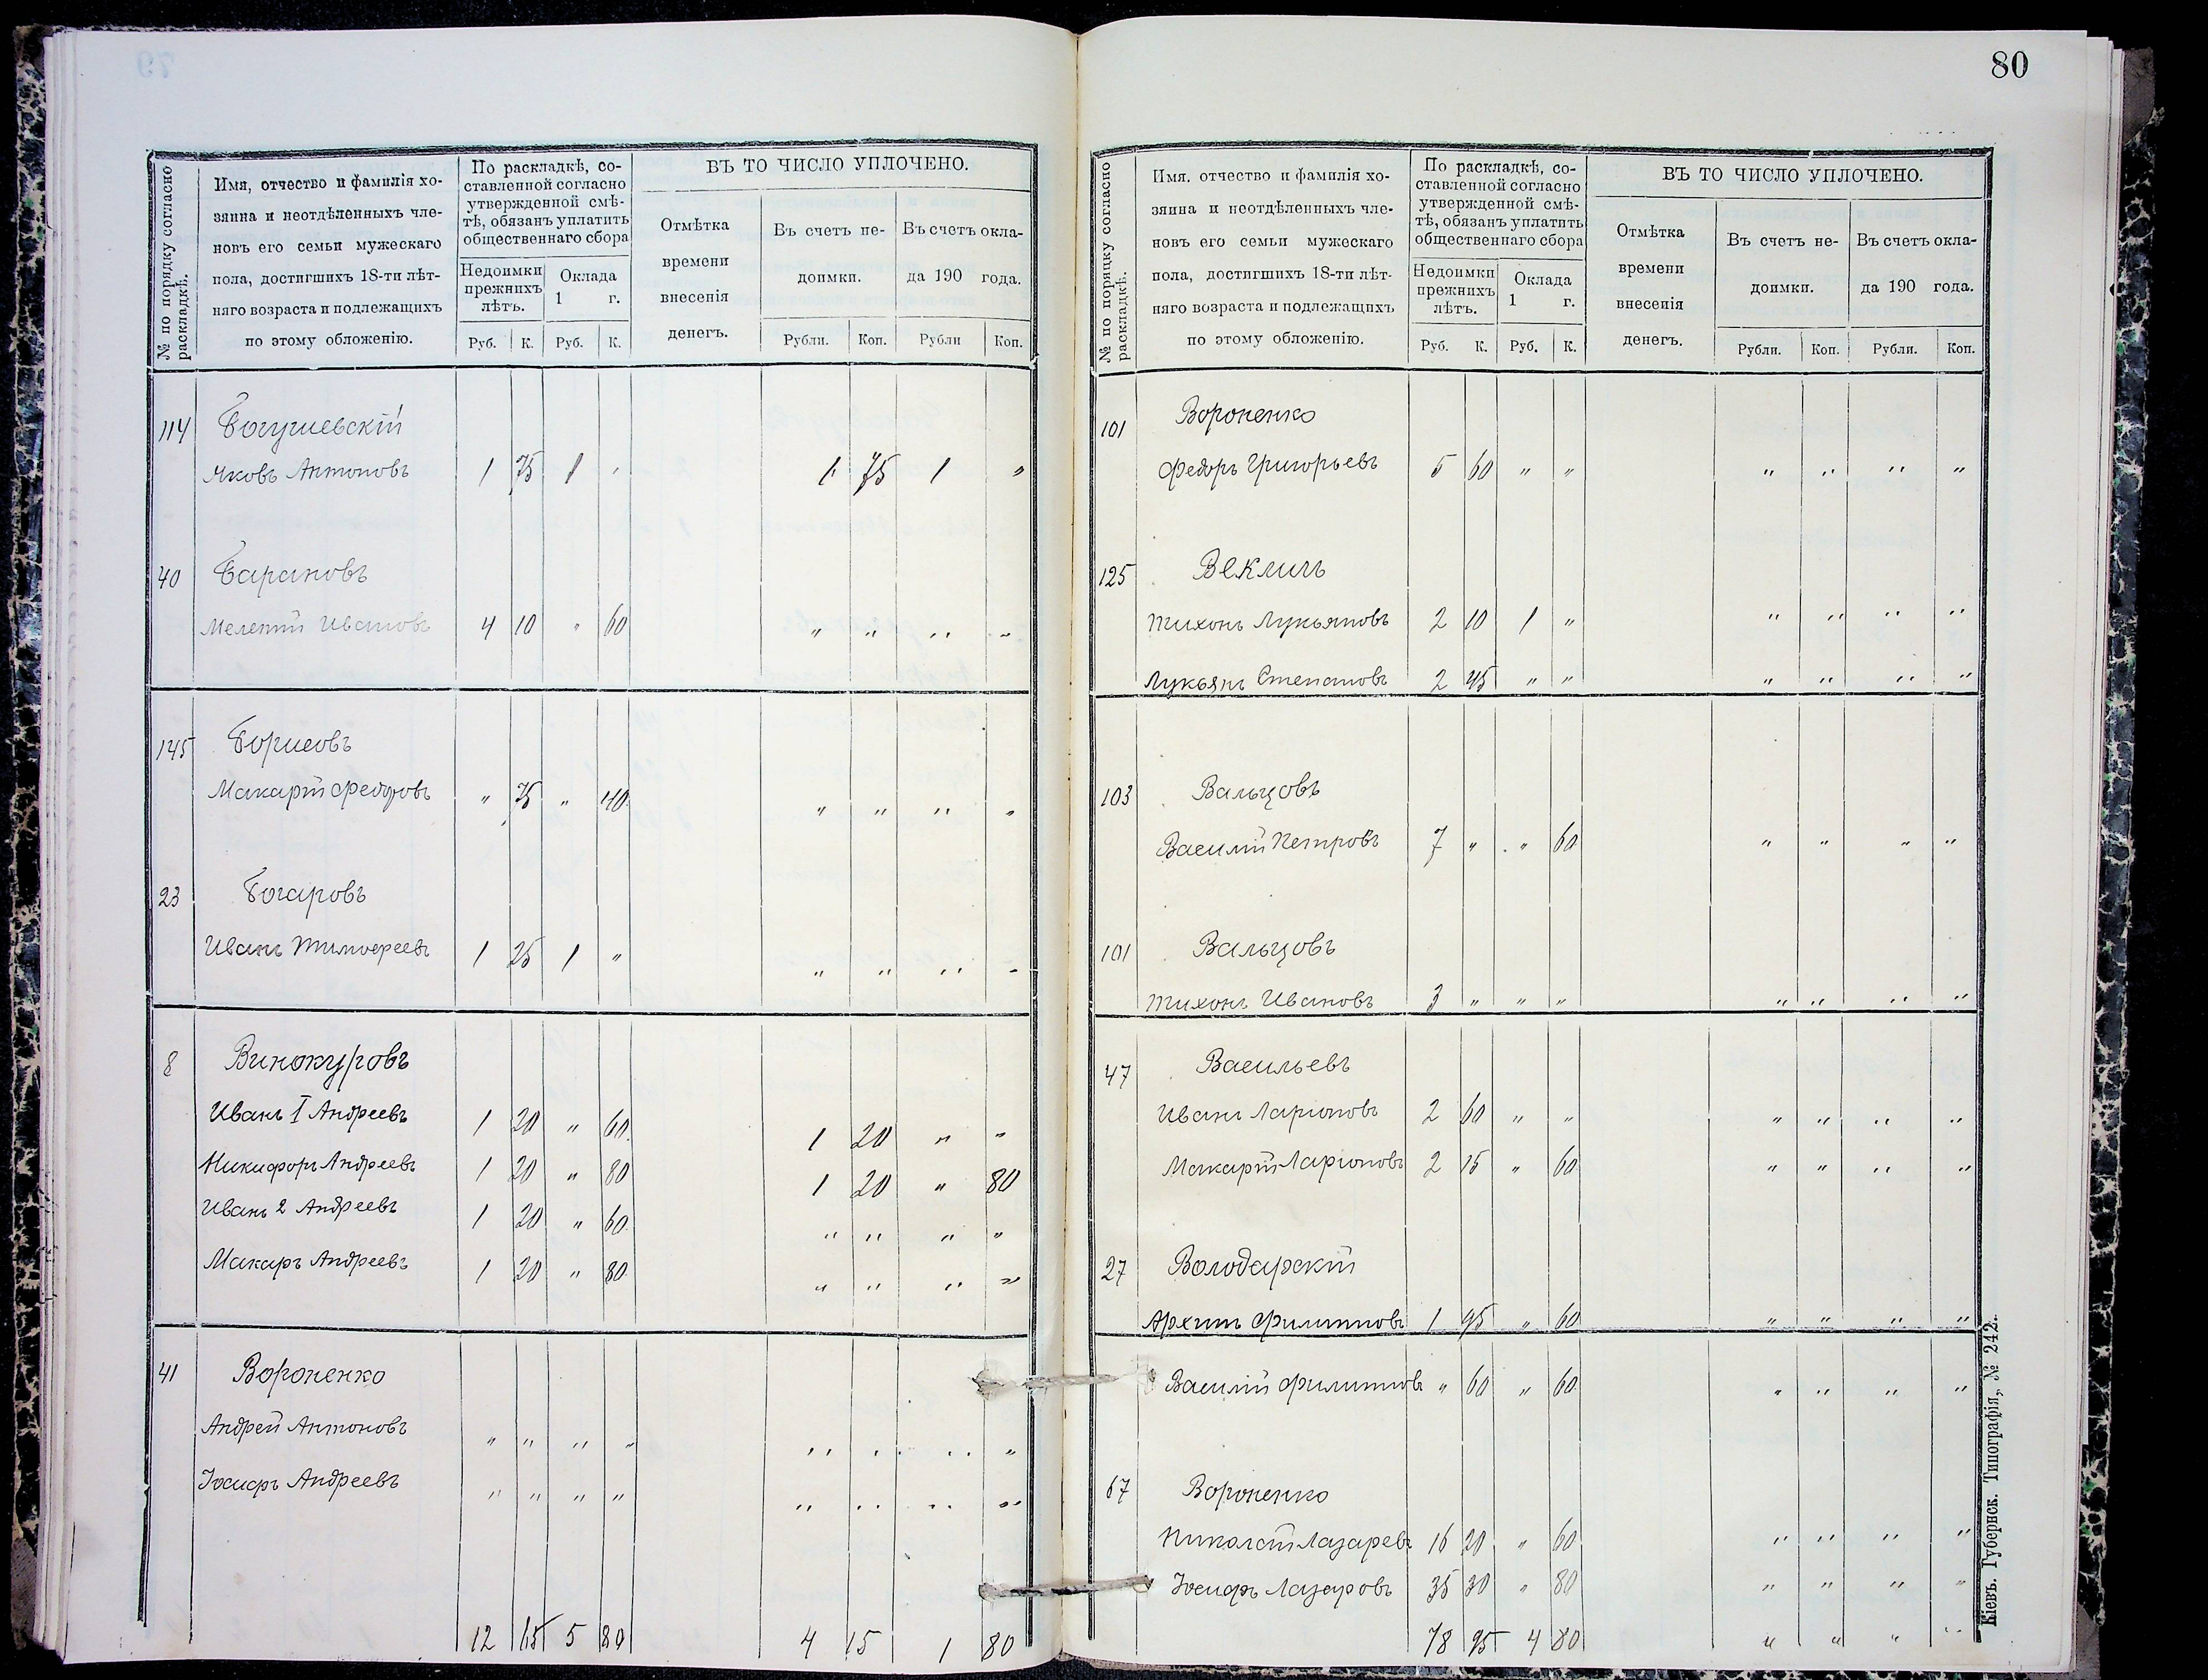 80
№ по порядку согласно раскладкѣ.
Имя, отчество и фамилія хо-
зяина и неотдѣленныхъ чле-
новъ его семьи мужескаго
пола, достигшихъ 18-ти лѣт-
няго возраста и подлежащихъ
по этому обложенію.
По раскладкѣ, со-
ставленной согласно
утвержденной смѣ-
тѣ, обязанъ уплатить
общественнаго сбора
Недоимки
прежнихъ
лѣтъ.
Оклада
1 г.
Руб. К. Руб. К.
ВЪ ТО ЧИСЛО УПЛОЧЕНО.
Отмѣтка
времени
внесенія
денегъ.
Въ счетъ не-
доимки.
Въ счетъ окла-
да 190 года.
Рубли. Коп. Рубли Коп.
114 Богушевскій
Яковъ Антоновъ 1 75 1 " 1 75 1 "
40 Барановъ
Мелетій Ивановъ 4 10 " 60 " " " "
145 Борисовъ
Макарій Федоровъ " 75 " 40 " " " "
23 Богаровъ
Иванъ Тимофеевъ 1 25 1 " " " " "
8 Винокуровъ
Иванъ I Андреевъ 1 20 " 60 1 20 " "
Никифоръ Андреевъ 1 20 " 80 1 20 " 80
Иванъ 2 Андреевъ 1 20 " 60 " " " "
Макаръ Андреевъ 1 20 " 80 " " " "
41 Вороненко
Андрей Антоновъ " " " " " " " "
Іосифъ Андреевъ " " " " " " " "
12 65 5 80 4 15 1 80
№ по порядку согласно раскладкѣ.
Имя. отчество и фамилія хо-
зяина и неотдѣленныхъ чле-
новъ его семьи мужескаго
пола, достигшихъ 18-ти лѣт-
няго возраста и подлежащихъ
по этому обложенію.
По раскладкѣ, со-
ставленной согласно
утвержденной смѣ-
тѣ, обязанъ уплатить
общественнаго сбора
Недоимки
прежнихъ
лѣтъ.
Оклада
1 г.
Руб. К. Руб. К.
ВЪ ТО ЧИСЛО УПЛОЧЕНО.
Отмѣтка
времени
внесенія
денегъ.
Въ счетъ не-
доимки.
Въ счетъ окла-
да 190 года.
Рубли. Коп. Рубли. Коп.
101 Вороненко
Федоръ Григорьевъ 5 60 " " " " " "
125 Векличъ
Тихонъ Лукьяновъ 2 10 1 " " " " "
Лукьянъ Степановъ 2 45 " " " " " "
103 Вальцовъ
Василій Петровъ 7 " " 60 " " " "
101 Вальцовъ
Тихонъ Ивановъ 3 " " " " " " "
47 Васильевъ
Иванъ Ларіоновъ 2 60 " " " " " "
Макарій Ларіоновъ 2 15 " 60 " " " "
27 Володарскій
Архипъ Филиповъ 1 95 " 60 " " " "
Василій Филиповъ " 60 " 60 " " " "
67 Вороненко
Николай Лазаревъ 16 20 " 60 " " " "
Іосифъ Лазаровъ 35 30 " 80 " " " "
78 95 4 80 " " " "
Кіевъ. Губернск. Типографія, № 242.